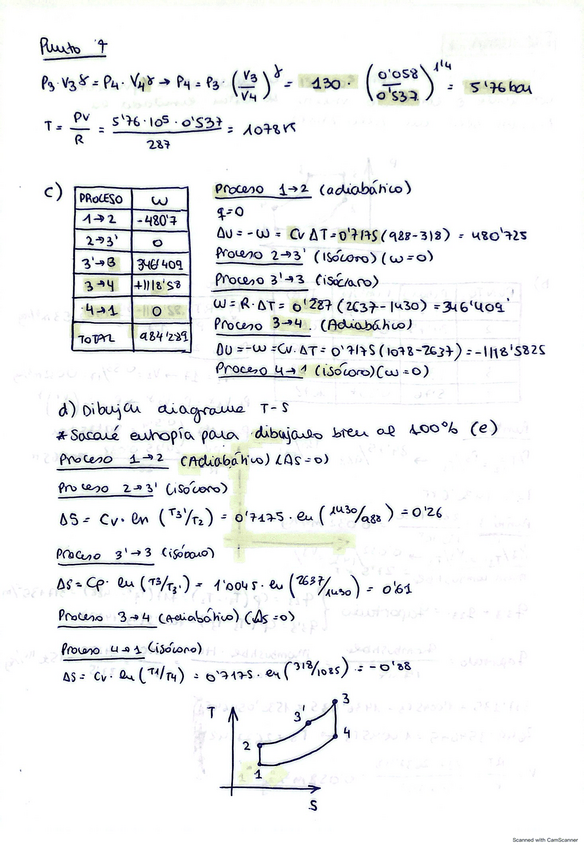 Punto 4
P3·V3^γ = P4·V4^γ → P4 = P3·(V3/V4)^γ = 130·(0'058/0'537)^1'4 = 5'76 bar
T = PV/R = 5'76·10^5·0'537/287 = 1078 K
c)
PROCESO W
1→2 -480'7
2→3' 0
3'→3 346'409
3→4 +1118'58
4→1 0
TOTAL 984'289
Proceso 1→2 (adiabático)
q=0
ΔU = -W = Cv ΔT = 0'7175 (988-318) = 480'725
Proceso 2→3' (isócoro) (w=0)
Proceso 3'→3 (isócaro)
W = R·ΔT = 0'287 (2637-1430) = 346'409
Proceso 3→4 (Adiabático)
ΔU = -W = Cv·ΔT = 0'7175 (1078-2637) = -1118'5825
Proceso 4→1 (isócoro) (w=0)
d) Dibujar diagrama T-S
*Sacaré entropía para dibujarlo bien al 100% (e)
Proceso 1→2 (Adiabático) (ΔS=0)
Proceso 2→3' (isócoro)
ΔS = Cv·ln (T3'/T2) = 0'7175·ln (1430/988) = 0'26
Proceso 3'→3 (isóbaro)
ΔS = Cp·ln (T3/T3') = 1'0045·ln (2637/1430) = 0'61
Proceso 3→4 (Adiabático) (ΔS=0)
Proceso 4→1 (isócoro)
ΔS = Cv·ln (T1/T4) = 0'7175·ln (318/1085) = -0'88
T
3
3'
2
4
1
S
Scanned with CamScanner